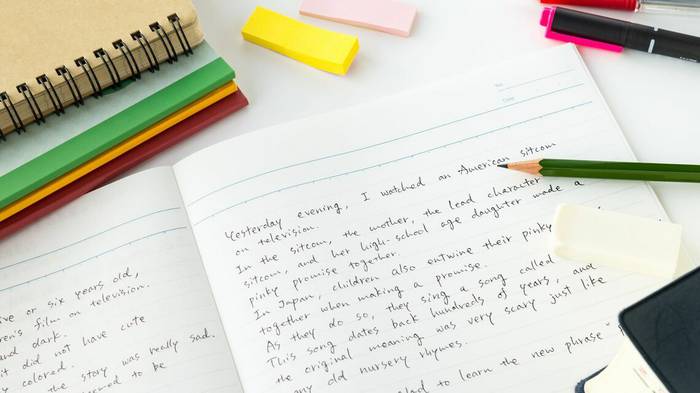 No.
Date
ive or six years old,
ren's film on television.
and dark.
it did not have cute
y colored.
the story was really sad.
seemed to be
Yesterday evening, I watched an American sitcom
on television.
In the sitcom, the mother, the lead character
sitcom, and her high-school age daughter made a
pinky promise together.
In Japan, children also entwine their pinky
together when making a promise.
As they do so, they sing a song called
This song dates back hundreds of years, and
the original meaning was very scary just like
any old nursery rhymes.
glad to learn the new phrase "p